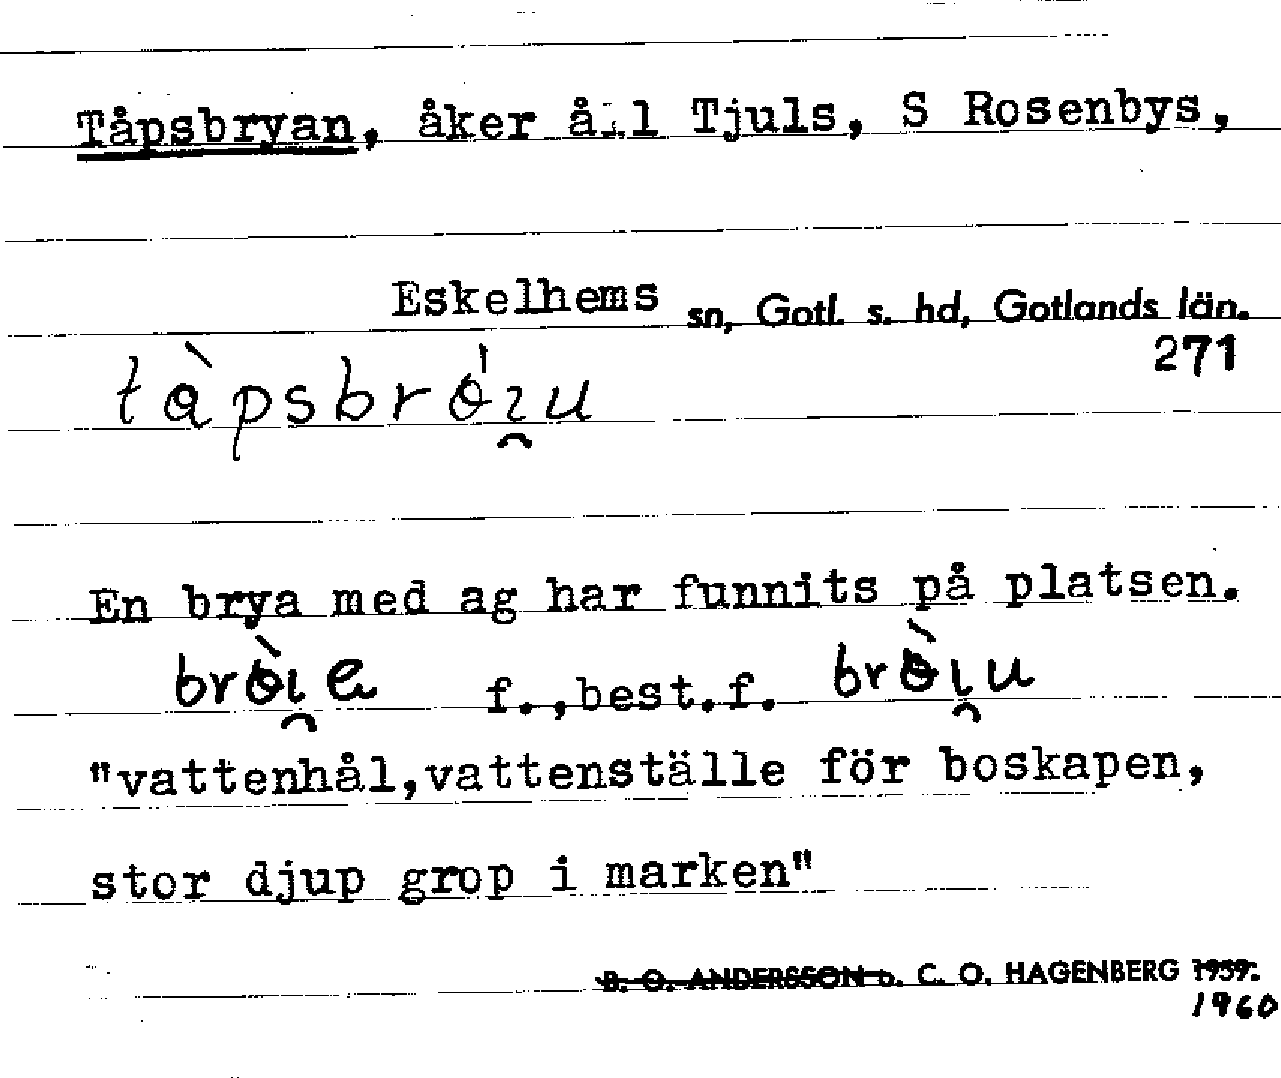 Tåpsbryan, åker å l Tjuls, S Rosenbys,
Eskelhems sn, Gotl. s. hd, Gotlands län.
271
En brya med ag har funnits på platsen.
f.,best.f.
"vattenhål,vattenställe för boskapen,
stor djup grop i marken"
B. O. ANDERSSON o. C. O. HAGENBERG 1959.
1960